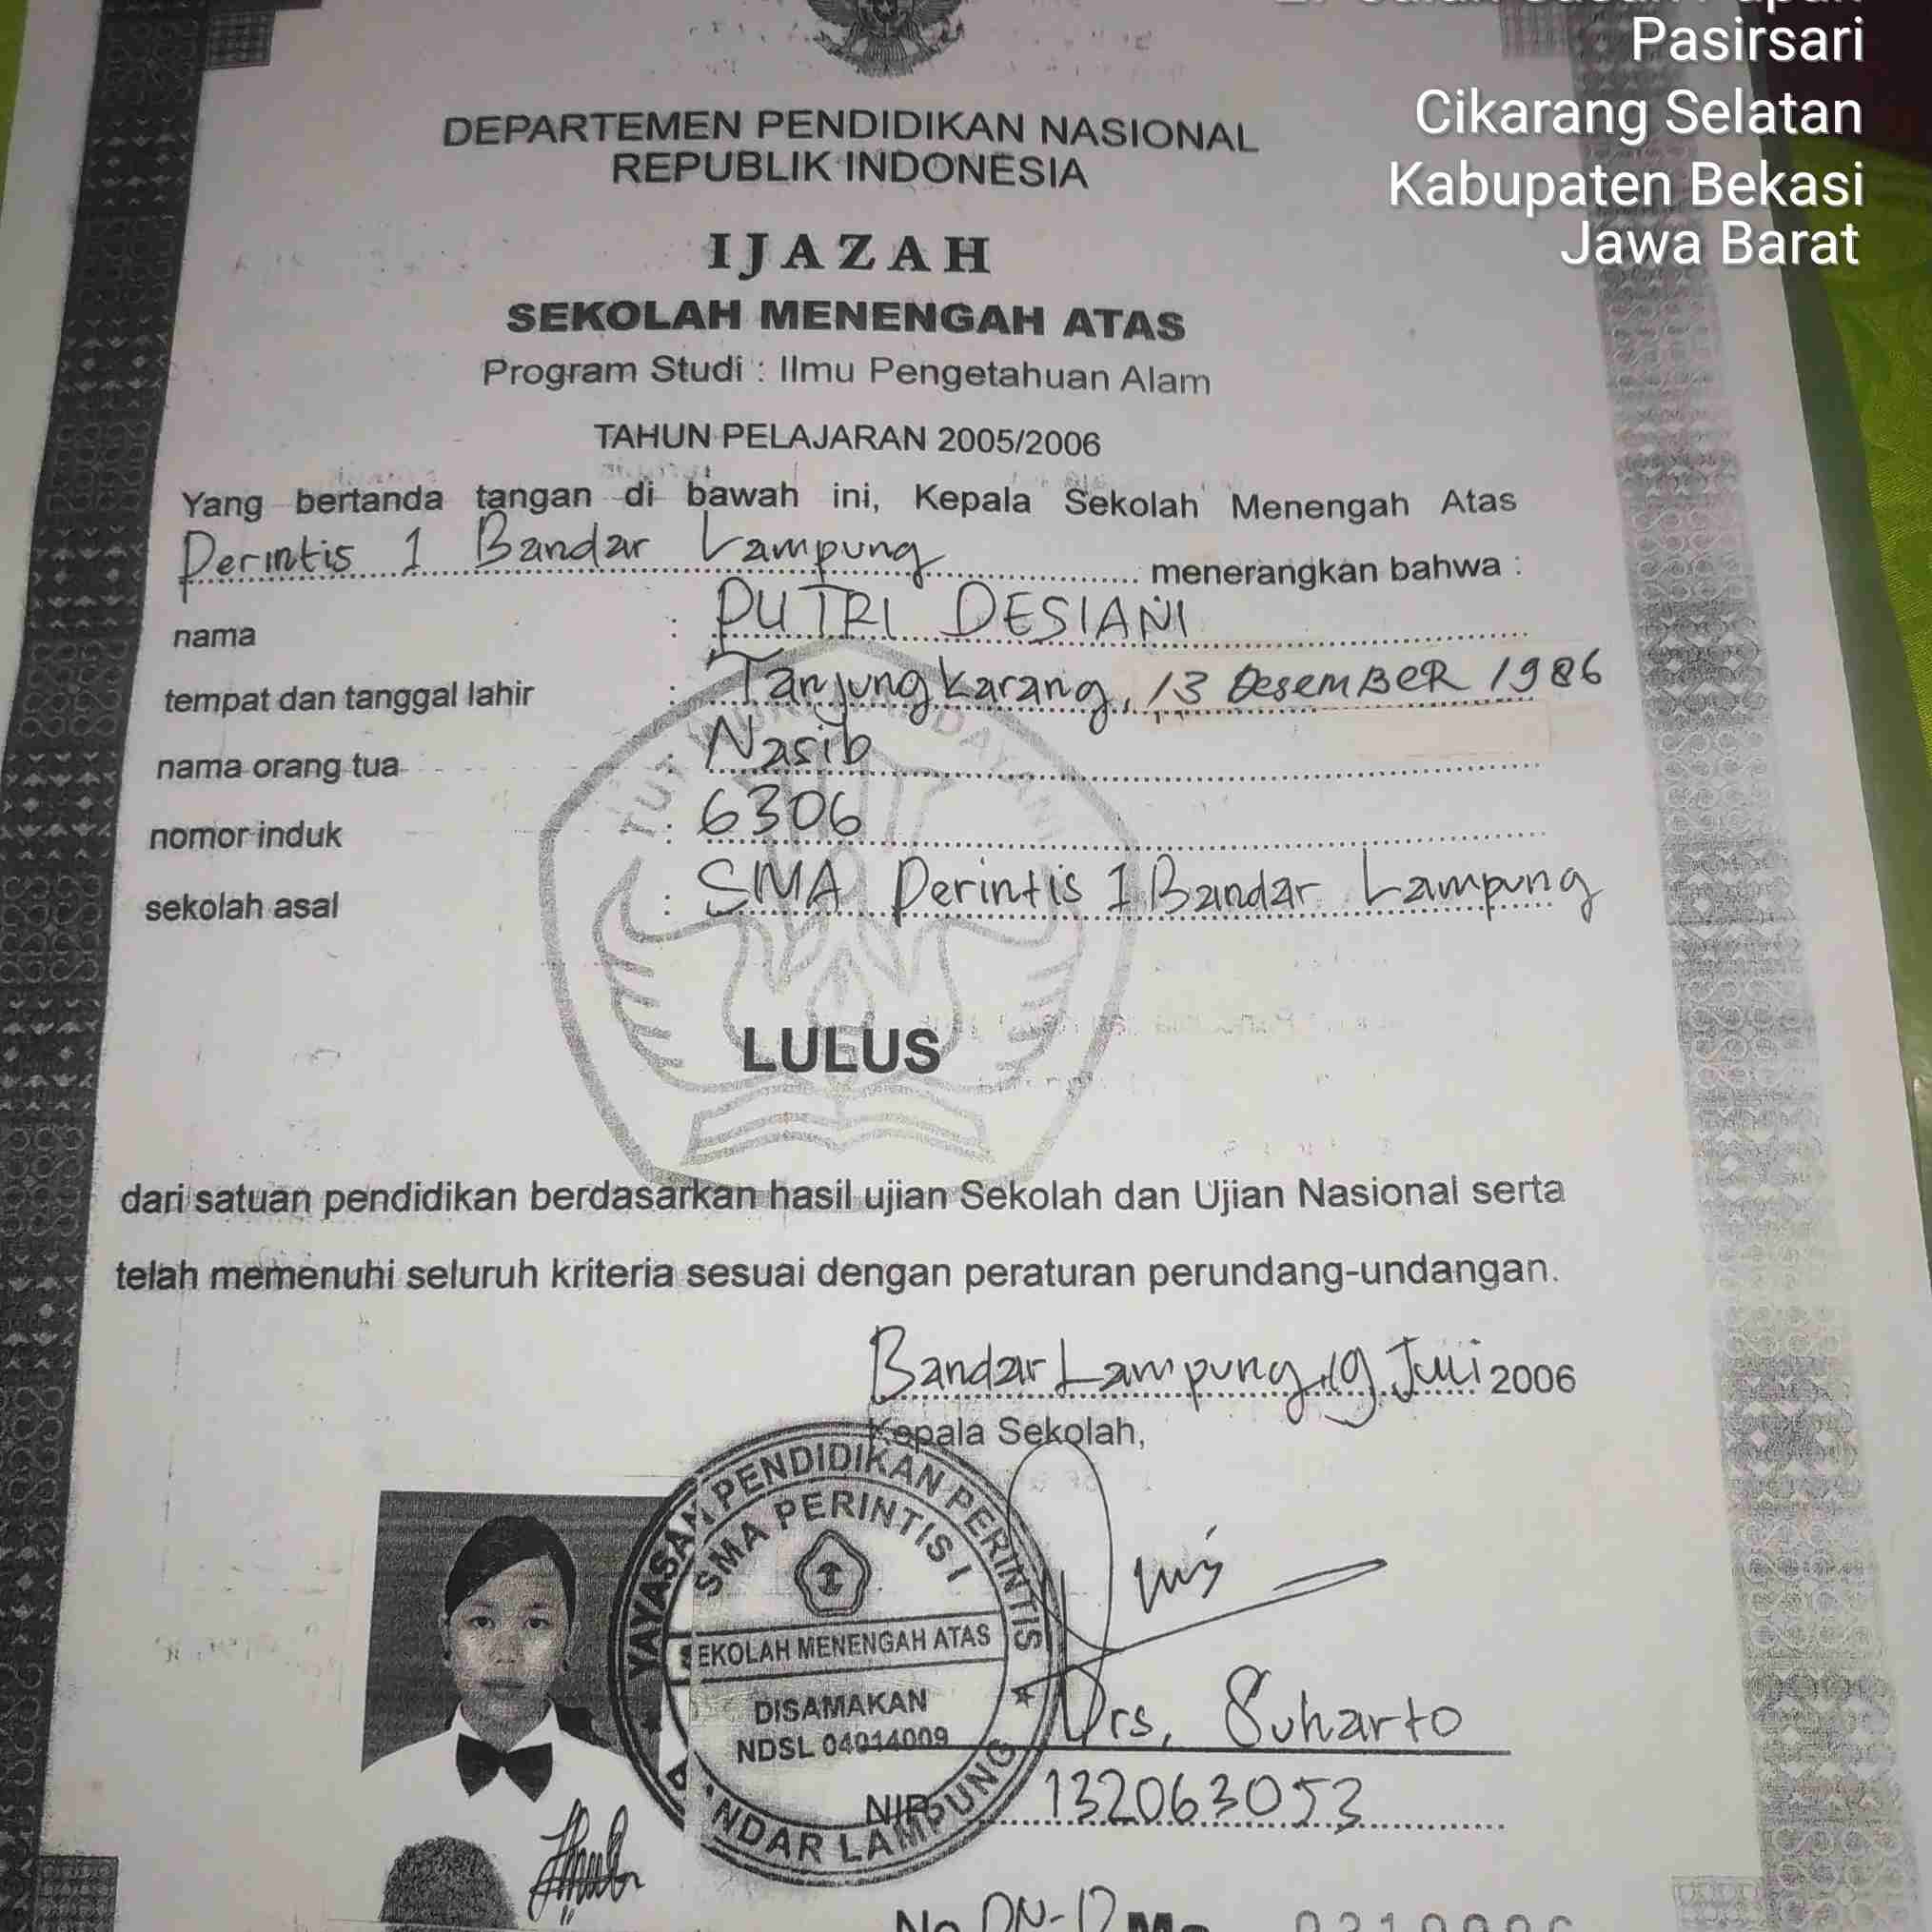 Pasirsari
Cikarang Selatan
Kabupaten Bekasi
Jawa Barat
DEPARTEMEN PENDIDIKAN NASIONAL
REPUBLIK INDONESIA
IJAZAH
SEKOLAH MENENGAH ATAS
Program Studi : Ilmu Pengetahuan Alam
TAHUN PELAJARAN 2005/2006
Yang bertanda tangan di bawah ini, Kepala Sekolah Menengah Atas
Perintis 1 Bandar Lampung menerangkan bahwa :
nama : PUTRI DESIANI
tempat dan tanggal lahir : Tanjungkarang, 13 DesemBeR 1986
nama orang tua : Nasib
nomor induk : 6306
sekolah asal : SMA Perintis 1 Bandar Lampung
TUT WURI HANDAYANI
LULUS
dari satuan pendidikan berdasarkan hasil ujian Sekolah dan Ujian Nasional serta
telah memenuhi seluruh kriteria sesuai dengan peraturan perundang-undangan.
Bandar Lampung, 19 Juli 2006
Kepala Sekolah,
YAYASAN PENDIDIKAN PERINTIS
SMA PERINTIS I
SEKOLAH MENENGAH ATAS
DISAMAKAN
NDSL 04014009
NDAR LAMPUNG
Drs, Suharto
NIP. 132063053
No DN-12 Ma